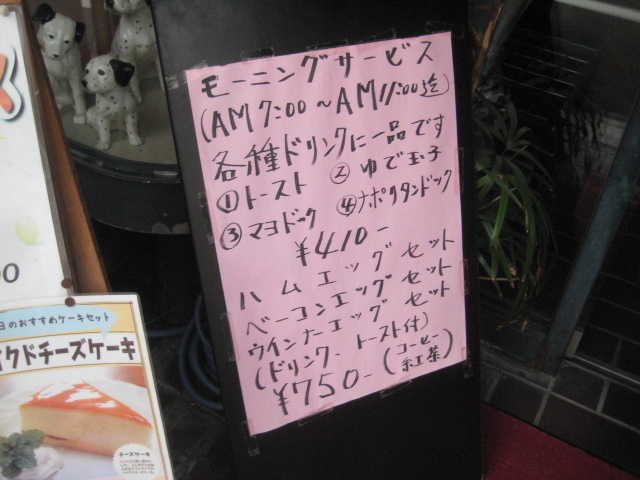 モーニングサービス
(AM7:00～AM11:00迄)
各種ドリンクに一品です
①トースト ②ゆで玉子
③マヨドーク ④ナポリタンドック
¥410-
ハムエッグセット
ベーコンエッグセット
ウインナーエッグセット
(ドリンクートースト付)
¥750-(コーヒー紅茶)
日のおすすめケーキセット
クドチーズケーキ
チーズケーキ